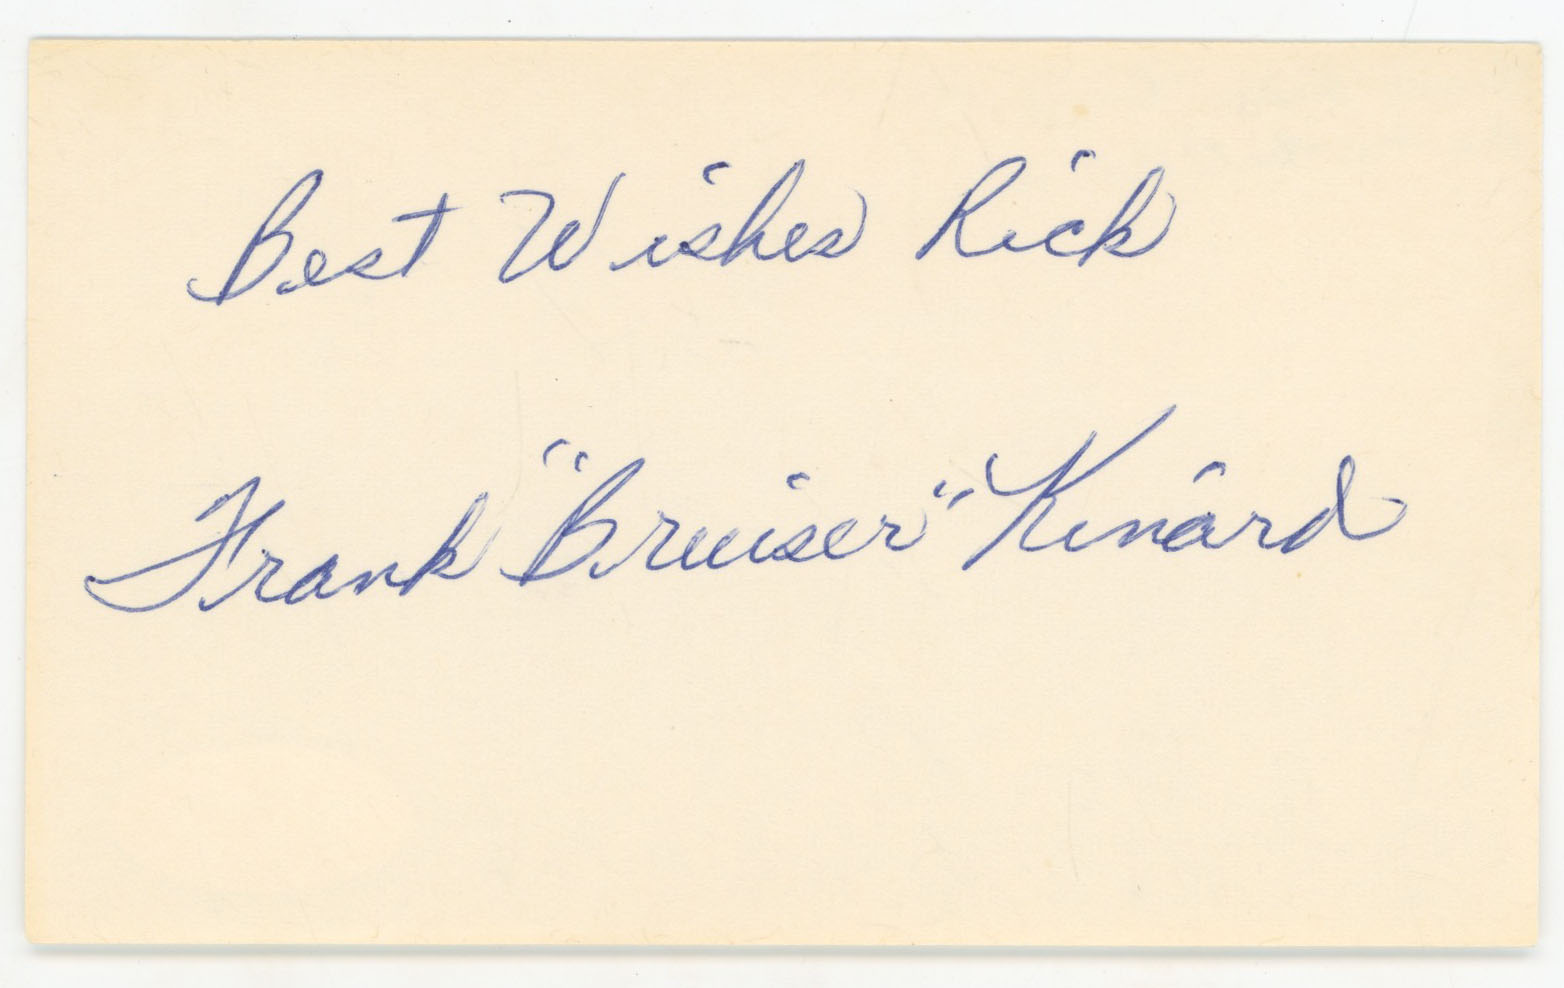 Best Wishes Rick
Frank "Bruiser" Kinard